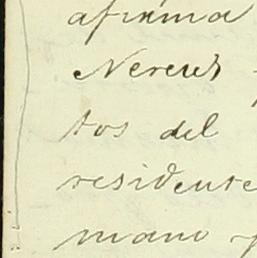 afirma
tos del
residente
mano